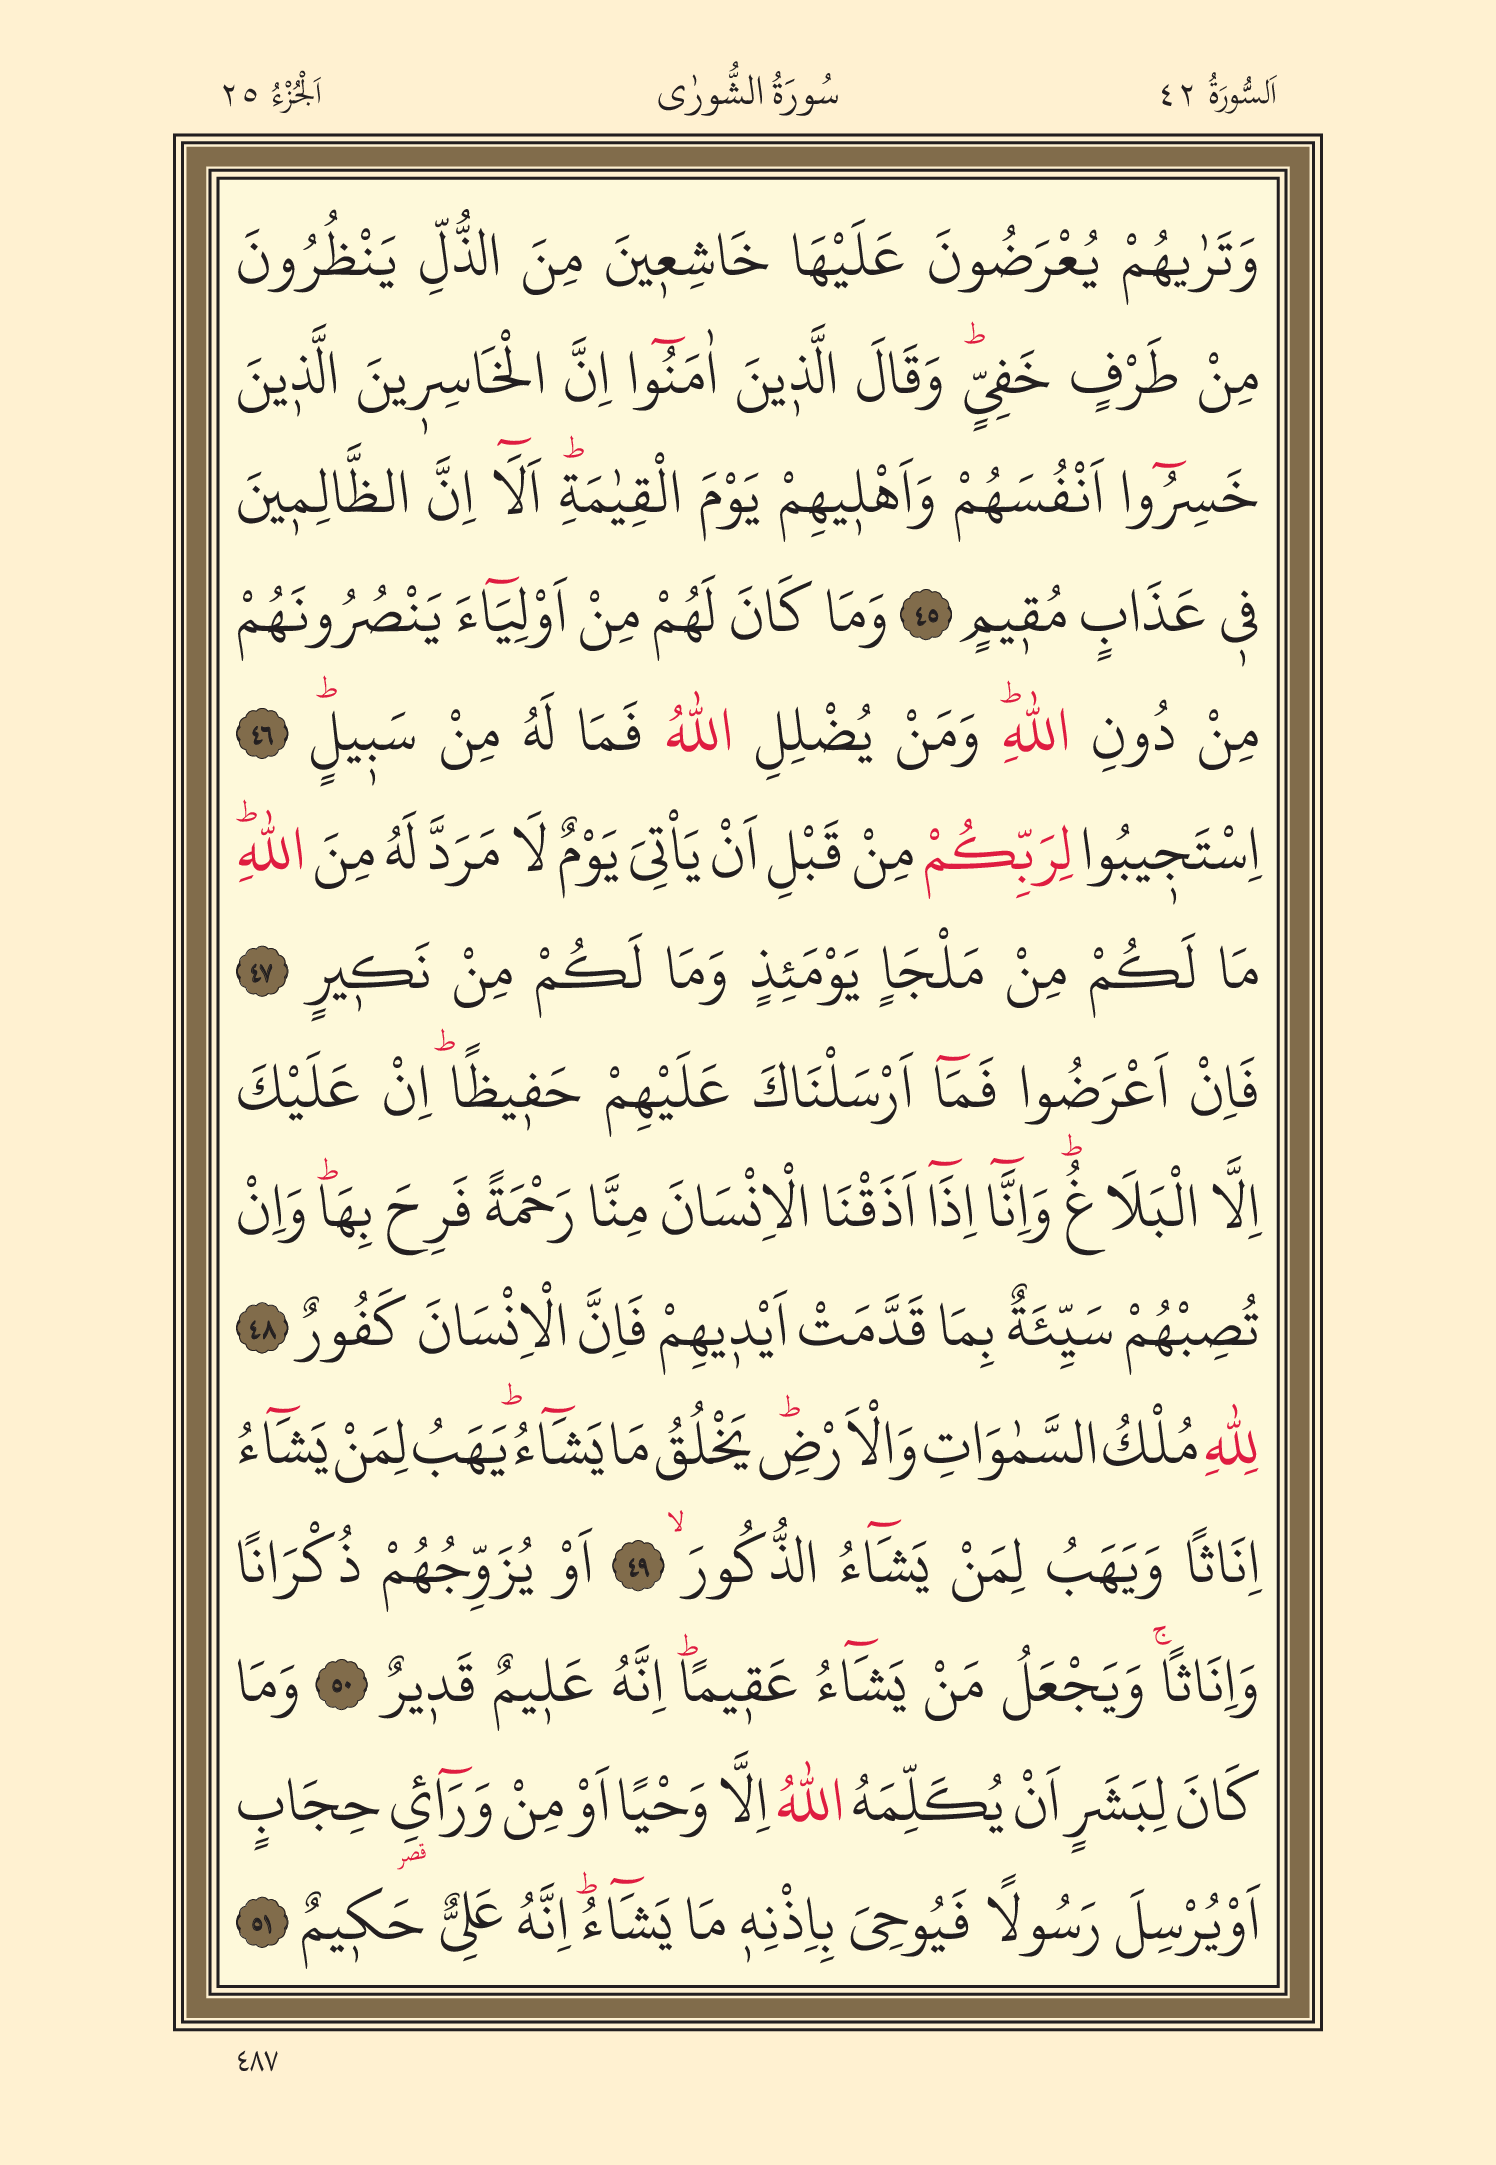 اَلسُّورَةُ ٤٢ سُورَةُ الشُّورٰى اَلْجُزْءُ ٢٥
وَتَرٰيهُمْ يُعْرَضُونَ عَلَيْهَا خَاشِع۪ينَ مِنَ الذُّلِّ يَنْظُرُونَ
مِنْ طَرْفٍ خَفِيٍّۜ وَقَالَ الَّذ۪ينَ اٰمَنُٓوا اِنَّ الْخَاسِر۪ينَ الَّذ۪ينَ
خَسِرُٓوا اَنْفُسَهُمْ وَاَهْل۪يهِمْ يَوْمَ الْقِيٰمَةِۜ اَلَٓا اِنَّ الظَّالِم۪ينَ
ف۪ي عَذَابٍ مُق۪يمٍ ٤٥ وَمَا كَانَ لَهُمْ مِنْ اَوْلِيَٓاءَ يَنْصُرُونَهُمْ
مِنْ دُونِ اللّٰهِۜ وَمَنْ يُضْلِلِ اللّٰهُ فَمَا لَهُ مِنْ سَب۪يلٍۜ ٤٦
اِسْتَج۪يبُوا لِرَبِّكُمْ مِنْ قَبْلِ اَنْ يَاْتِيَ يَوْمٌ لَا مَرَدَّ لَهُ مِنَ اللّٰهِۜ
مَا لَكُمْ مِنْ مَلْجَاٍ يَوْمَئِذٍ وَمَا لَكُمْ مِنْ نَك۪يرٍ ٤٧
فَاِنْ اَعْرَضُوا فَمَٓا اَرْسَلْنَاكَ عَلَيْهِمْ حَف۪يظًاۜ اِنْ عَلَيْكَ
اِلَّا الْبَلَاغُۜ وَاِنَّٓا اِذَٓا اَذَقْنَا الْاِنْسَانَ مِنَّا رَحْمَةً فَرِحَ بِهَاۜ وَاِنْ
تُصِبْهُمْ سَيِّئَةٌ بِمَا قَدَّمَتْ اَيْد۪يهِمْ فَاِنَّ الْاِنْسَانَ كَفُورٌ ٤٨
لِلّٰهِ مُلْكُ السَّمٰوَاتِ وَالْاَرْضِۜ يَخْلُقُ مَا يَشَٓاءُۜ يَهَبُ لِمَنْ يَشَٓاءُ
اِنَاثًا وَيَهَبُ لِمَنْ يَشَٓاءُ الذُّكُورَۙ ٤٩ اَوْ يُزَوِّجُهُمْ ذُكْرَانًا
وَاِنَاثًاۚ وَيَجْعَلُ مَنْ يَشَٓاءُ عَق۪يمًاۜ اِنَّهُ عَل۪يمٌ قَد۪يرٌ ٥٠ وَمَا
كَانَ لِبَشَرٍ اَنْ يُكَلِّمَهُ اللّٰهُ اِلَّا وَحْيًا اَوْ مِنْ وَرَٓائِ۬ حِجَابٍ
قصر
اَوْ يُرْسِلَ رَسُولًا فَيُوحِيَ بِاِذْنِه۪ مَا يَشَٓاءُۜ اِنَّهُ عَلِيٌّ حَك۪يمٌ ٥١
٤٨٧